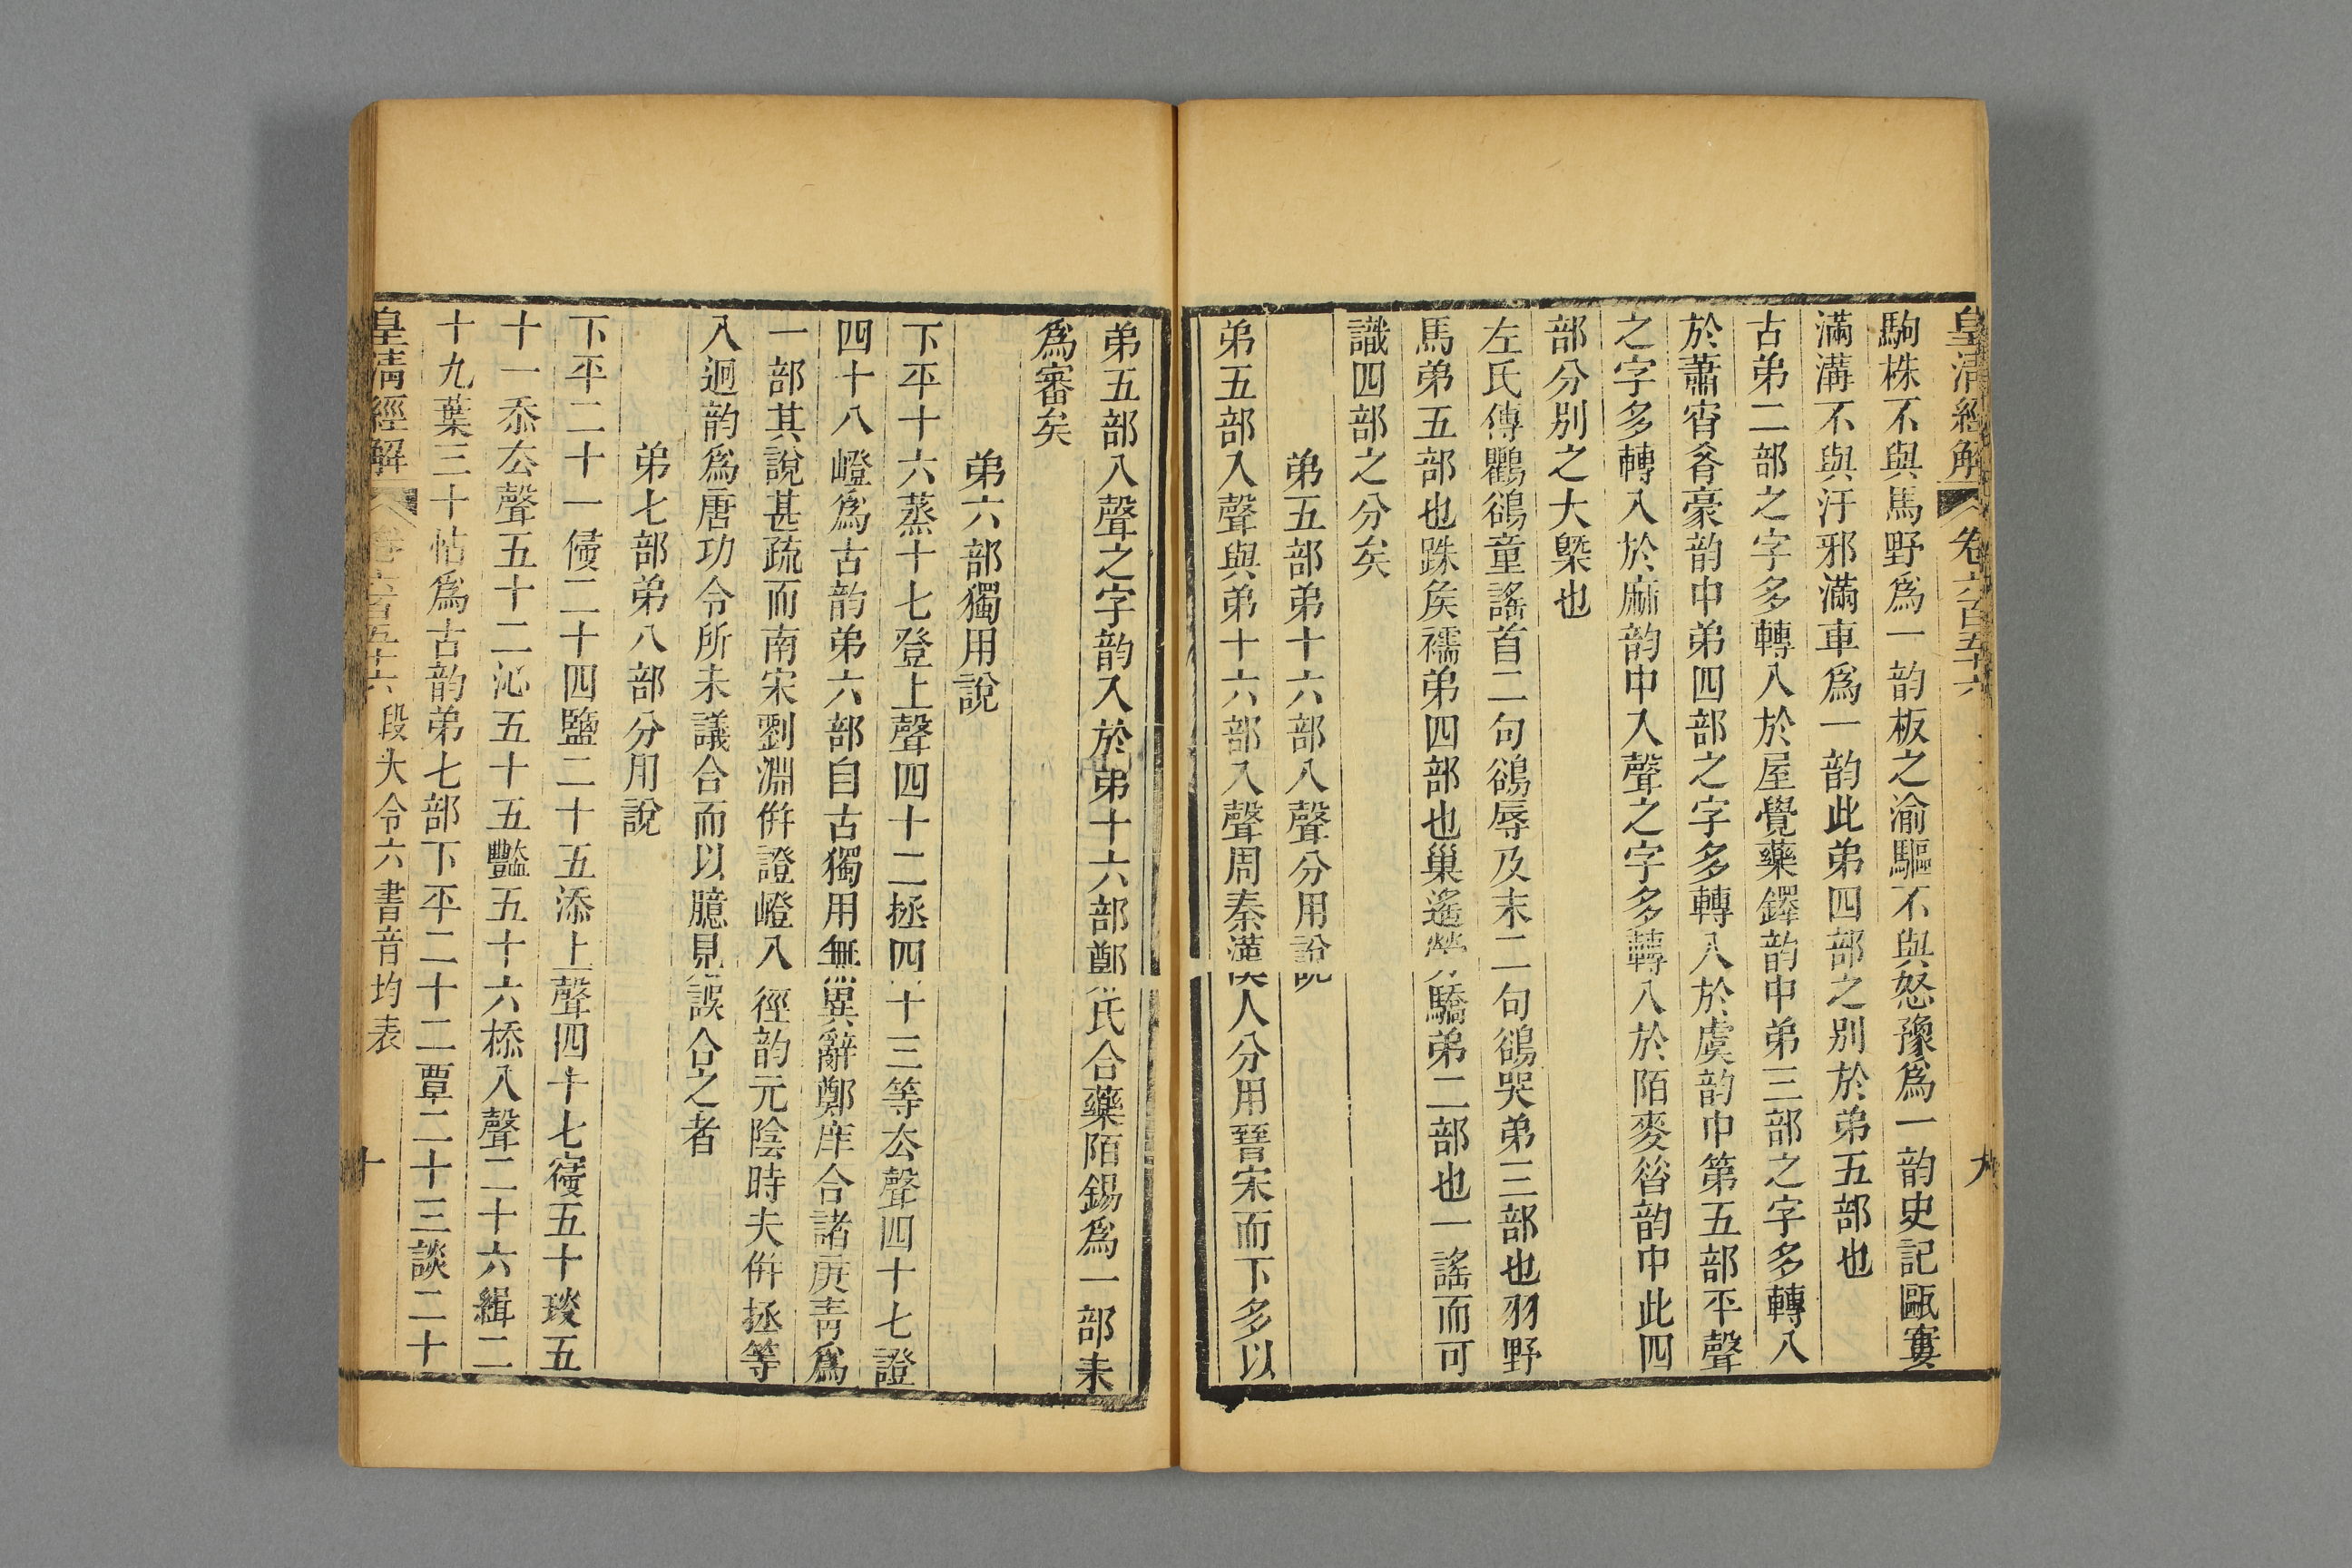 皇清經解 卷六百五十六 九
駒株不與馬野爲一韵板之渝驅不與怒豫爲一韵史記甌窶
滿溝不與汙邪滿車爲一韵此弟四部之別於弟五部也
古弟二部之字多轉入於屋覺藥鐸韵中弟三部之字多轉入
於蕭宵肴豪韵中弟四部之字多轉入於虞韵中第五部平聲
之字多轉入於麻韵中入聲之字多轉入於陌麥昝韵中此四
部分別之大槩也
左氏傳鸜鵒童謠首二句鵒辱及末二句鵒哭弟三部也羽野
馬弟五部也跦矦襦弟四部也巢遙勞驕弟二部也一謠而可
識四部之分矣
弟五部弟十六部入聲分用說
弟五部入聲與弟十六部入聲周秦漢人分用晉宋而下多以
弟五部入聲之字韵入於弟十六部鄭氏合藥陌錫爲一部未
爲審矣
弟六部獨用說
下平十六蒸十七登上聲四十二拯四十三等厺聲四十七證
四十八嶝爲古韵弟六部自古獨用無異辭鄭庠合諸庚青爲
一部其說甚疏而南宋劉淵倂證嶝入徑韵元陰時夫倂拯等
入迥韵爲唐功令所未議合而以臆見誤合之者
弟七部弟八部分用說
下平二十一侵二十四鹽二十五添上聲四十七寑五十琰五
十一忝厺聲五十二沁五十五豔五十六㮇入聲二十六緝二
十九葉三十帖爲古韵弟七部下平二十二覃二十三談二十
皇清經解 卷六百五十六 段大令六書音均表 十